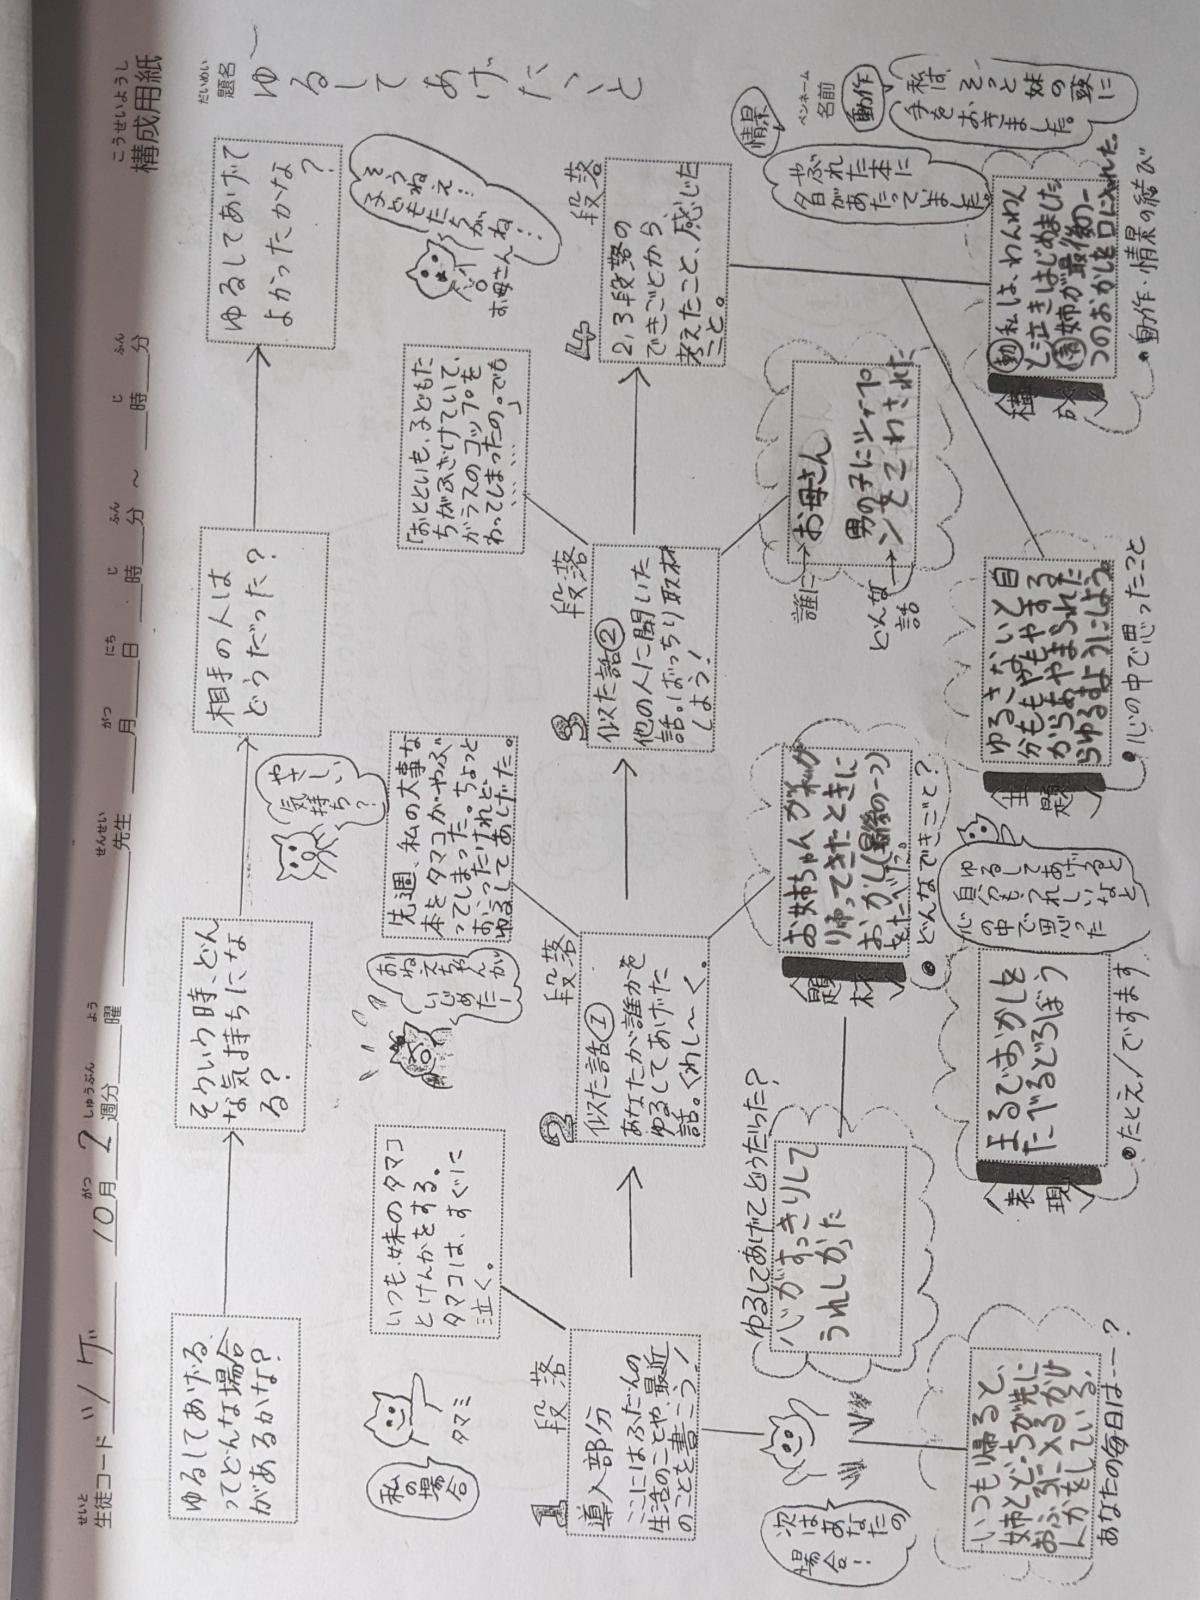 こうせいようし
構成用紙
せいと
生徒コード ツゲ 10月 2週分 曜 先生 月 日 時 分 ～ 時 分
がつ しゅうぶん よう せんせい がつ にち じ ふん じ ふん
だいめい
題名
ゆるしてあげたいこと
ペンネーム
名前
ゆるしてあげる
ってどんな場合
があるかな?
そういう時、どん
な気持ちにな
る?
相手の人は
どうだった?
ゆるしてあげて
よかったかな
?
私の
場合
タマミ
いつも、妹のタマコ
とけんかをする。
タマコは、すぐに
泣く。
おねえちゃんが
いじめたー!
先週、私の大事な
本をタマコがやぶ
ってしまった。ちょっと
おこったけれど
ゆるしてあげた。
やさしい
気持ち?
「おとといも、子どもた
ちがふざけていて、
ガラスのコップを
わってしまったの。でも
、、、、、、」
そうねえ!
子どもたちが
ね…
お母さん
1段落
導入部分
ここにはふだんの
生活のことや、最近
のことを書こう!
2段落
似た話①
あなたが誰かを
ゆるしてあげた
話。くわし〜く。
3段落
似た話②
他の人に聞いた
話。ばっちり取材
しよう!
4段落
2,3段落の
できごとから、
考えたこと、感じた
こと。
次は
あなたの
場合!
いつも帰ると、
姉とどっちが先に
おふろに入るかけ
んかをしている。
あなたの毎日は――?
ゆるしてあげてどうだった?
心がすっきりして
うれしかった
〈題材〉
お姉ちゃんが
ってきたときに
おかし(最後の一つ)
をたべた。
どんなできごと?
誰に→お母さん
どんな話→
男の子にシャープ
ンをこわされた
〈表現〉
まるでおかしを
たべるどろぼう
たとえ/ですます
自分も
ゆるしてあげると
うれしいなと
心の中で思った
〈主題〉
ゆるさないと自
分ももやもやする
からあやまられた
らゆるすようにしよう。
心の中で思ったこと
〈構成〉
動 私は、わんわん
と泣きはじめました
情 姉が最後の一
つのおかしを口に入れた。
動作・情景の結び
情景
やぶれた本に
夕日があたって
いました。
動作
私は、そっと妹の頭に
手をおきました。